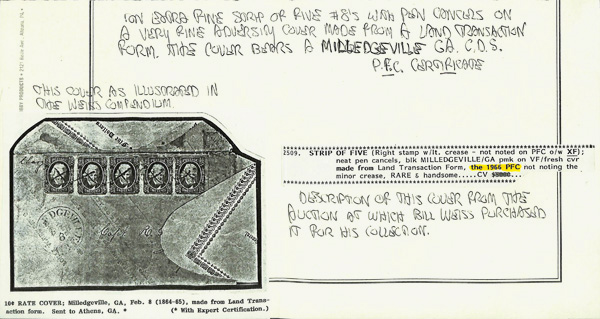 10N EXTRA FINE STRIP OF FIVE #8'S WITH PEN CANCELS ON
A VERY FINE ADVERSITY COVER MADE FROM A LAND TRANSACTION
FORM. THE COVER BEARS A MILLEDGEVILLE GA. C.D.S.
P.F.C. CERTIFICATE
THIS COVER AS ILLUSTRATED IN
THE WEISS COMPENDIUM.
2509, STRIP OF FIVE (Right stamp w/lt. crease - not noted on PFC o/w XF);
neat pen cancels, blk MILLEDGEVILLE/GA pmk on VF/fresh cvr
made from Land Transaction Form, the 1966 PFC not noting the
minor crease, RARE & handsome.....CV
DESCRIPTION OF THIS COVER FROM THE
AUCTION AT WHICH BILL WEISS PURCHASED
IT FOR HIS COLLECTION.
10¢ RATE COVER; Milledgville, GA, Feb. 8 (1864-65), made from Land Trans-
action form. Sent to Athens, GA. * (* With Expert Certification.)